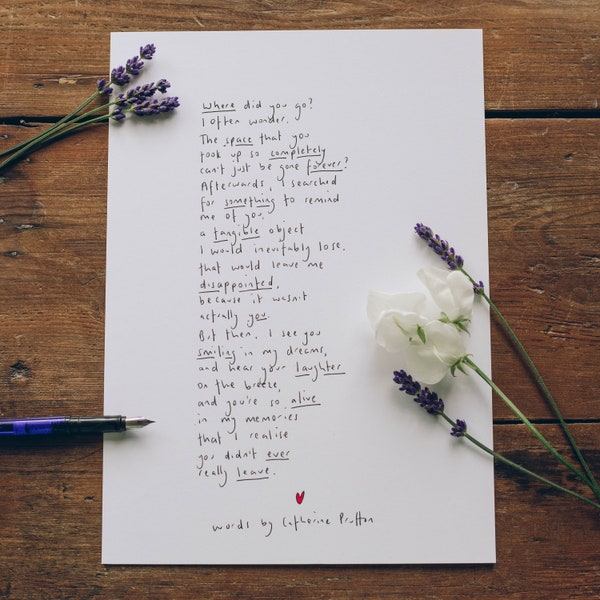 Where did you go?
I often wonder.
The space that you
took up so completely
can't just be gone forever?
Afterwards, I searched
for something to remind
me of you.
a tangible object
I would inevitably lose.
that would leave me
disappointed,
because it wasn't
actually you.
But then, I see you
smiling in my dreams,
and hear your laughter
on the breeze,
and you're so alive
in my memories
that I realise
you didn't ever
really leave.
words by Catherine Prutton